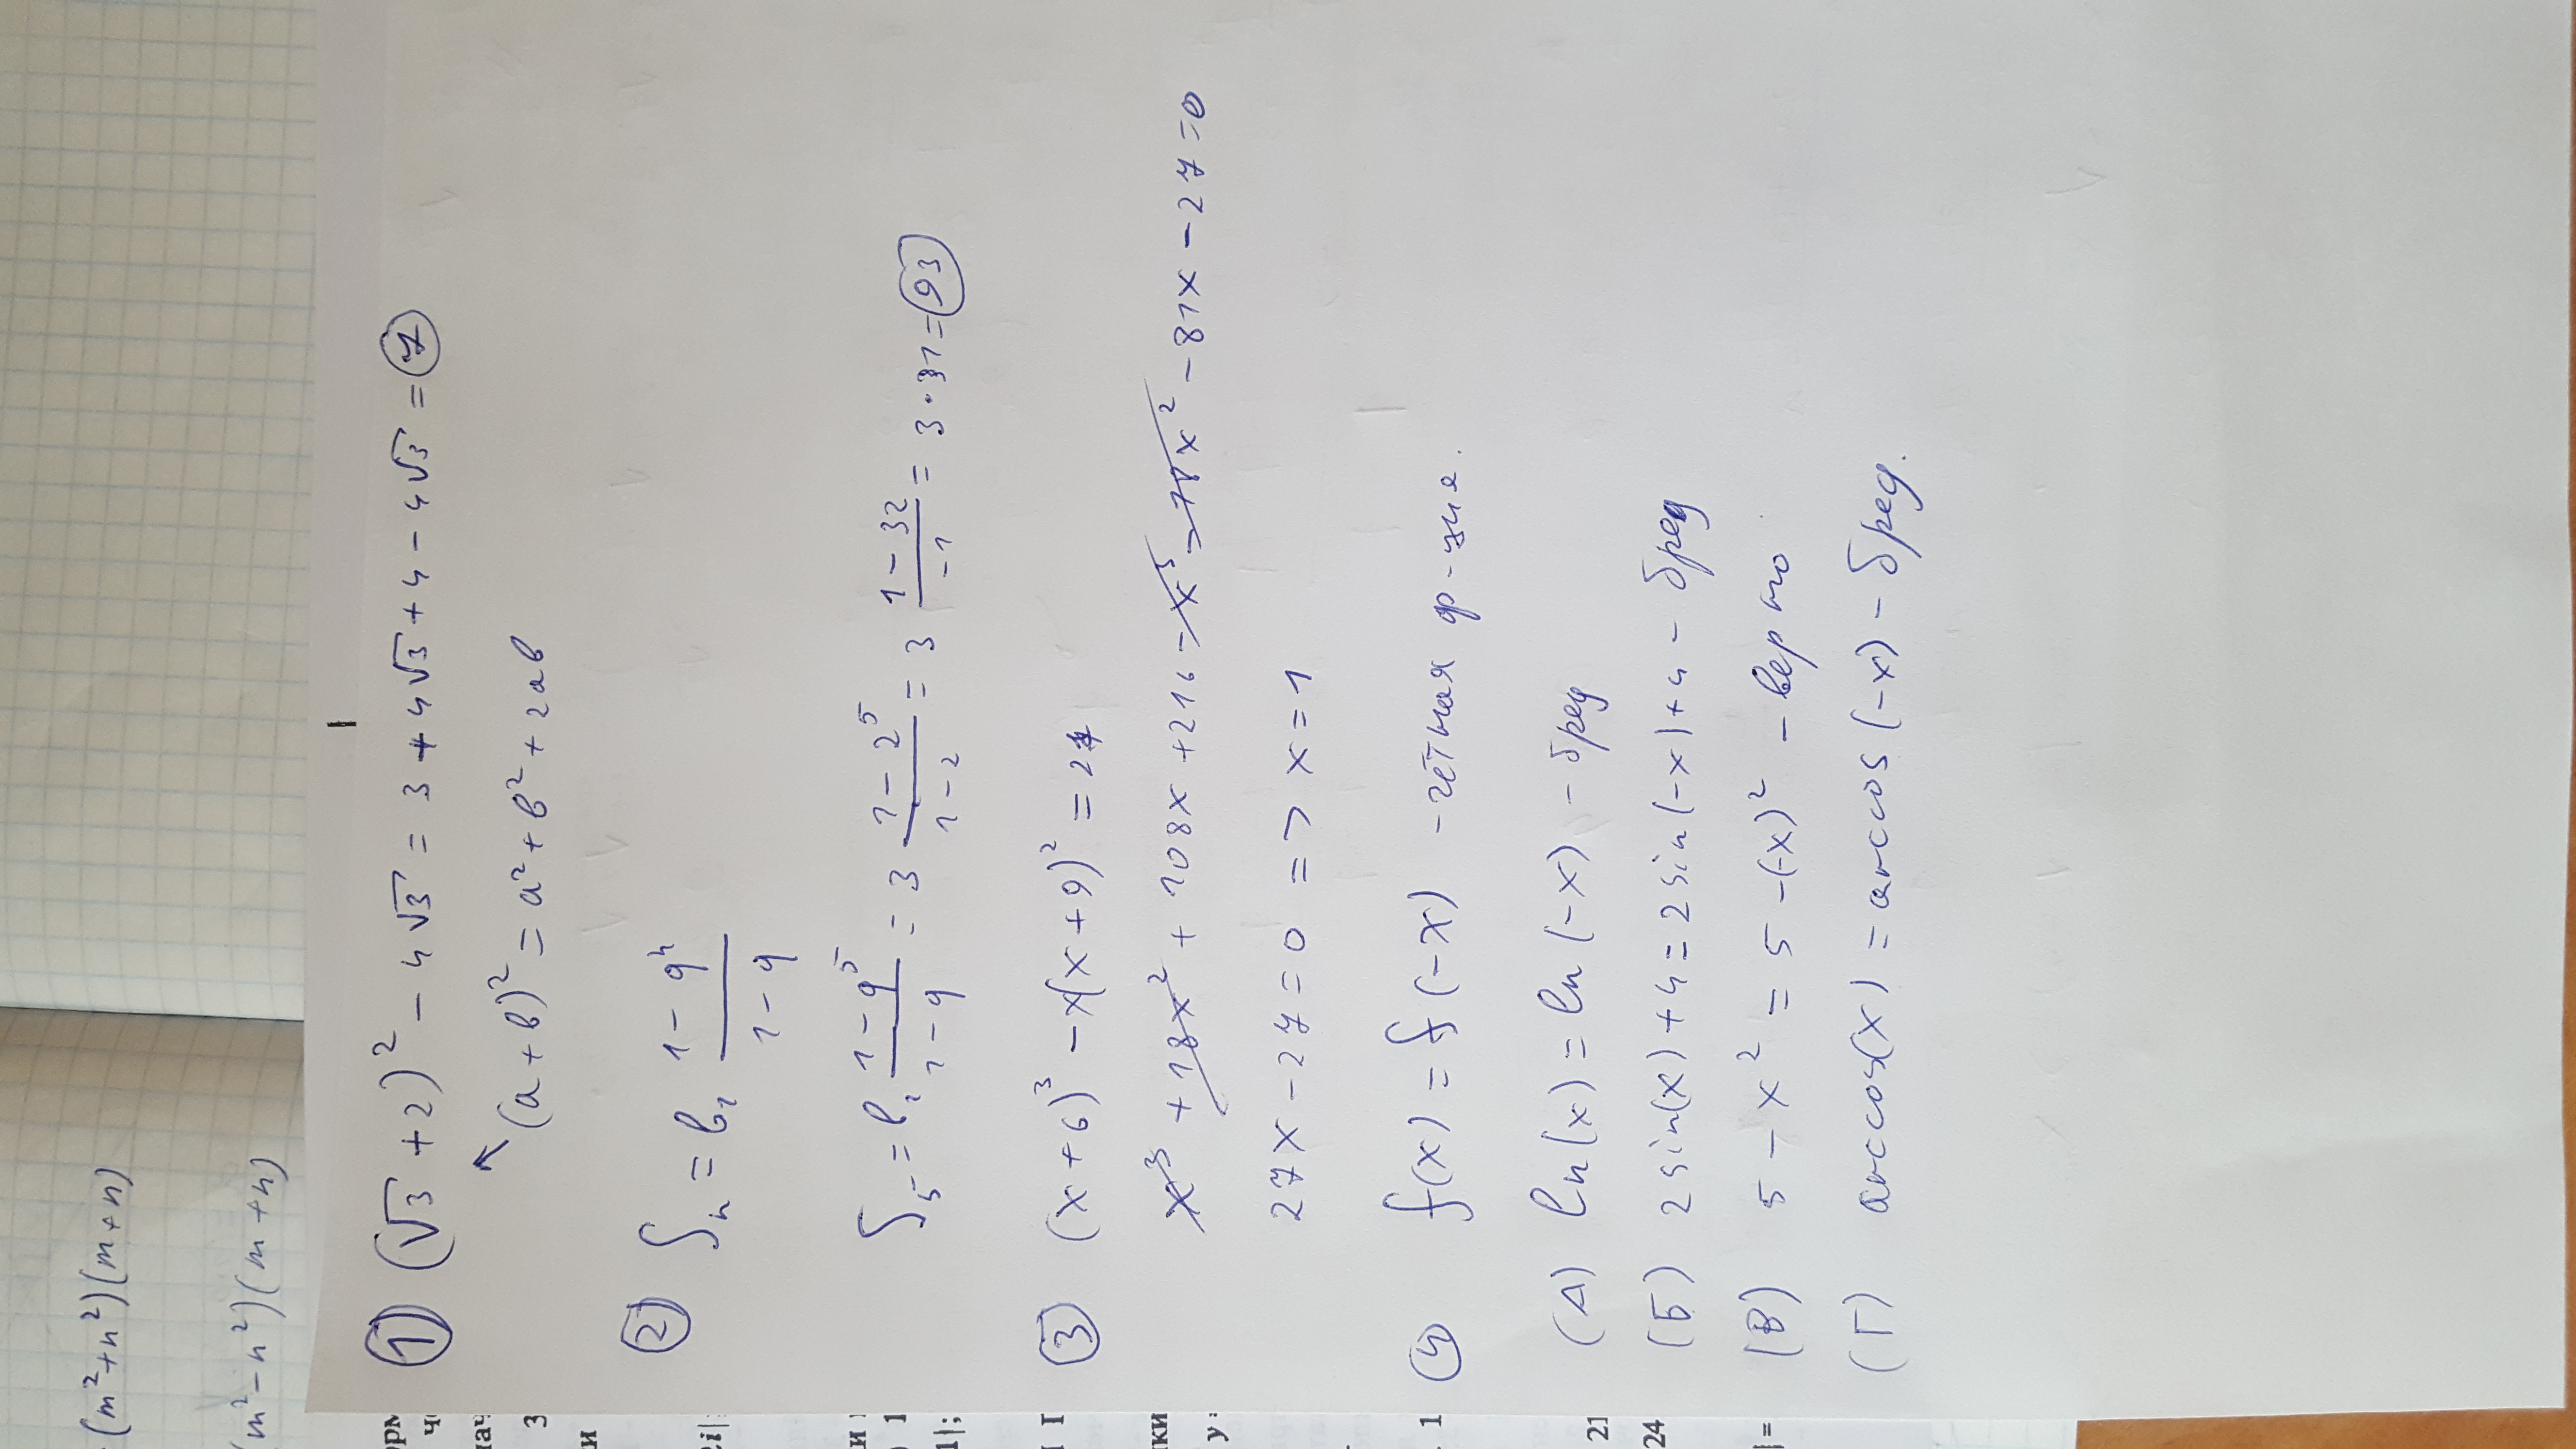 (m²+n²)(m+n)
(m²-n²)(m+n)
① (√3+2)² - 4√3 = 3 + 4√3 + 4 - 4√3 = 7
(a+b)² = a² + b² + 2ab
② Sₙ = b₁ (1 - qⁿ)/(1 - q)
S₅ = b₁ (1 - q⁵)/(1 - q) = 3 (1 - 2⁵)/(1 - 2) = 3 (1 - 32)/(-1) = 3 · 31 = 93
③ (x+6)³ - x(x+9)² = 27
x³ + 18x² + 108x + 216 - x³ - 18x² - 81x - 27 = 0
27x - 27 = 0 => x = 1
④ f(x) = f(-x) - чётная ф-
(А) ln(x) = ln(-x) - бред
(Б) 2sin(x) + 4 = 2sin(-x) + 4 - бред
(В) 5 - x² = 5 - (-x)² - верно
(Г) arccos(x) = arccos(-x) - бред.
3
и
1
1|;
у
1
21
24